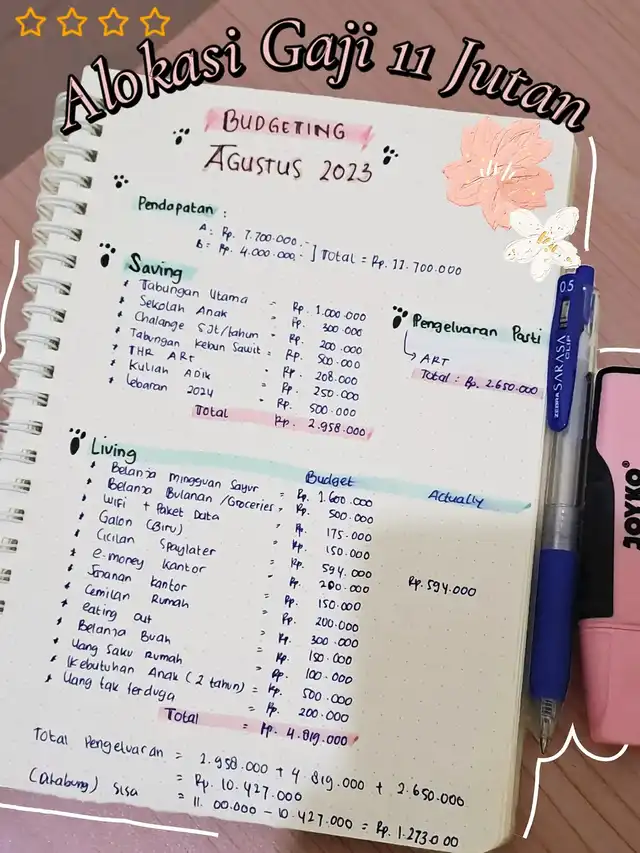 Alokasi Gaji 11 Jutan
BUDGETING
AGUSTUS 2023
Pendapatan :
A = Rp. 7.700.000.-
B = Rp. 4.000.000.- ] Total = Rp. 11.700.000
Saving
Tabungan Utama = Rp. 1.000.000
Sekolah Anak = Rp. 300.000
Chalange 5Jt/tahun = Rp. 200.000
Tabungan Kebun Sawit = Rp. 500.000
THR ART = Rp. 208.000
Kuliah Adik = Rp. 250.000
Lebaran 2024 = Rp. 500.000
Total Rp. 2.958.000
Pengeluaran Pasti
ART
Total : Rp. 2.650.000
Living Budget Actually
Belanja mingguan sayur = Rp. 1.600.000
Belanja Bulanan / Groceries = Rp. 500.000
Wifi + Paket Data = Rp. 175.000
Galon (Biru) = Rp. 150.000
Cicilan Spaylater = Rp. 594.000 Rp. 594.000
e-money kantor = Rp. 200.000
Jananan kantor = Rp. 150.000
Cemilan Rumah = Rp. 200.000
eating out = Rp. 300.000
Belanja Buah = Rp. 150.000
Uang Saku Rumah = Rp. 100.000
Kebutuhan Anak (2 tahun) = Rp. 500.000
Uang tak terduga = Rp. 200.000
Total = Rp. 4.819.000
Total Pengeluaran = 2.958.000 + 4.819.000 + 2.650.000
= Rp. 10.427.000
(Ditabung) Sisa = 11. 00.000 - 10.427.000 = Rp. 1.273.0 00
0.5
ZEBRA SARASA CLIP
JOYKO®